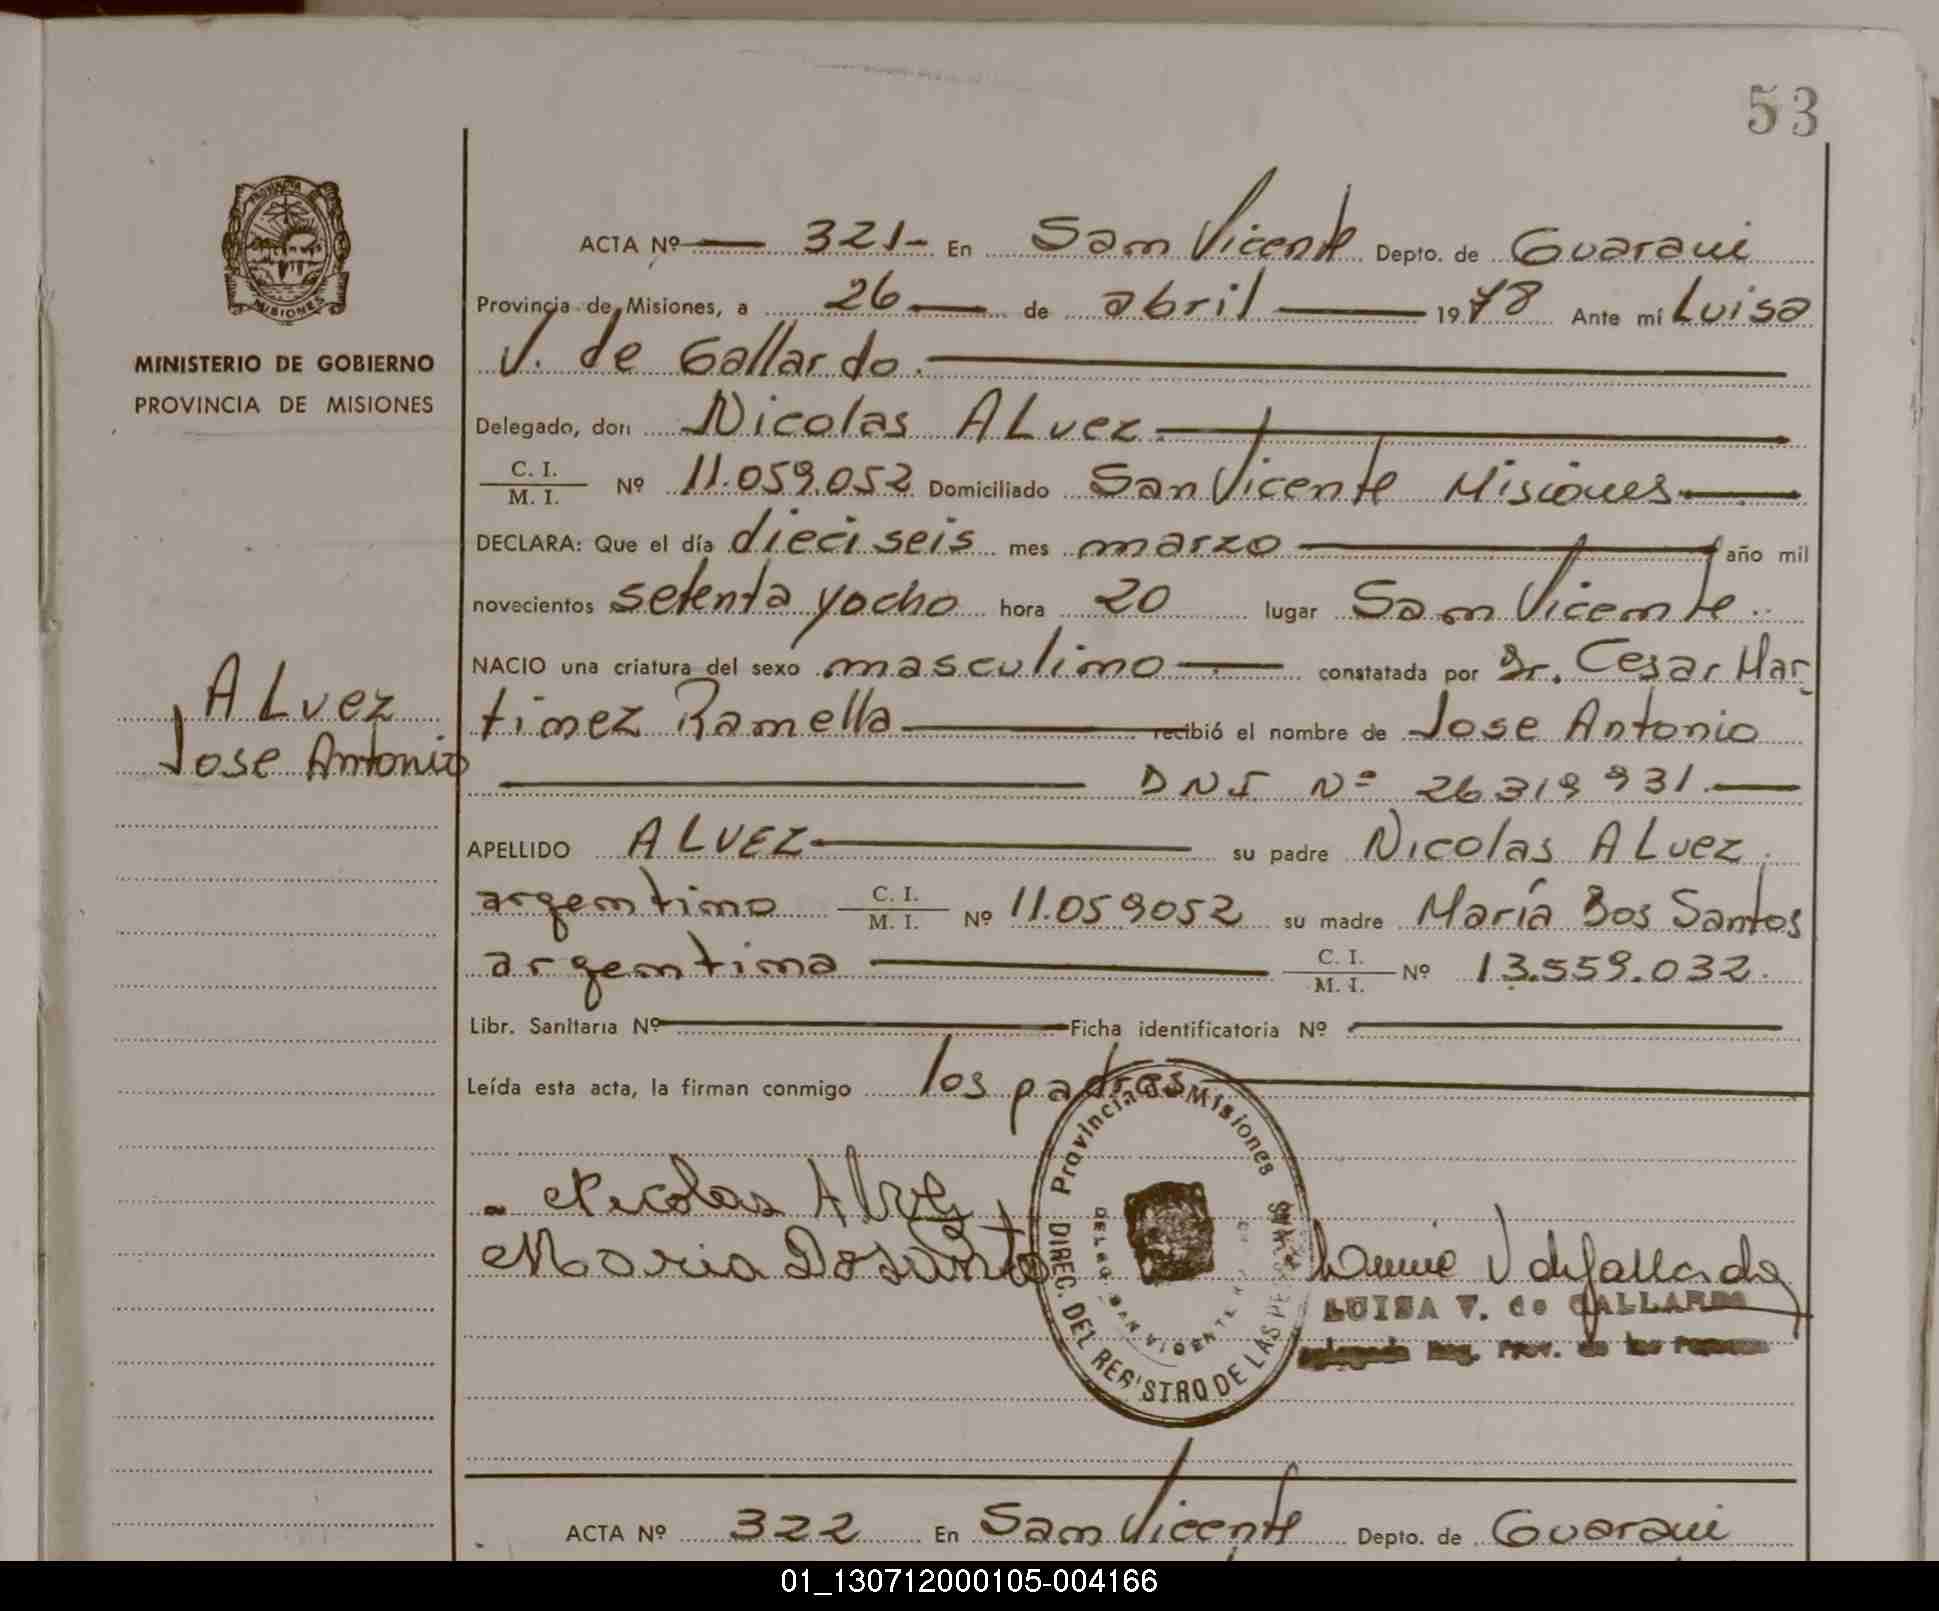 53
PROVINCIA
MISIONES
MINISTERIO DE GOBIERNO
PROVINCIA DE MISIONES
ALvez
Jose Antonio
ACTA Nº 321- En San Vicente Depto. de Guarani
Provincia de Misiones, a 26 de abril 1978 Ante mí Luisa
V. de Gallardo.
Delegado, don Nicolas ALvez
C. I. / M. I. Nº 11.059.052 Domiciliado San Vicente Misiones
DECLARA: Que el día dieciseis mes marzo año mil
novecientos setenta yocho hora 20 lugar San Vicente
NACIO una criatura del sexo masculino constatada por Dr. Cesar Mar
tinez Ramella recibió el nombre de Jose Antonio
DNI Nº 26319931
APELLIDO ALVEZ su padre Nicolas ALvez
argentino C. I. / M. I. Nº 11.059052 su madre María Dos Santos
argentina C. I. / M. I. Nº 13.559.032.
Libr. Sanitaria Nº Ficha identificatoria Nº
Leída esta acta, la firman conmigo los padres
Nicolas Alvez
Maria Dosanto
Provincia de Misiones
DIREC. DEL REGISTRO DE LAS PERSONAS
DELEG. SAN VICENTE
V de Gallardo
LUISA V. de GALLARDO
Delegada Reg. Prov. de las Personas
ACTA Nº 322 En San Vicente Depto. de Guarani
01_130712000105-004166